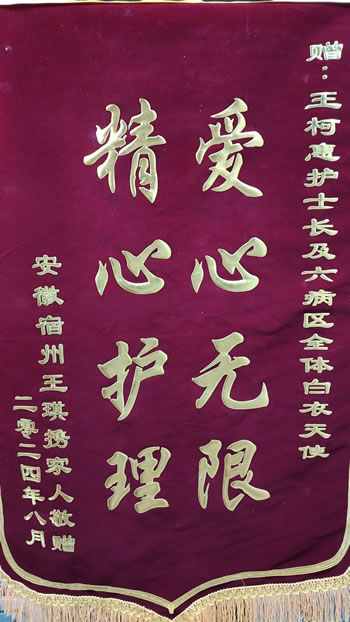 赠：王柯惠护士长及六病区全体白衣天使
爱心无限
精心护理
安徽宿州王琪携家人敬赠
二零二四年八月